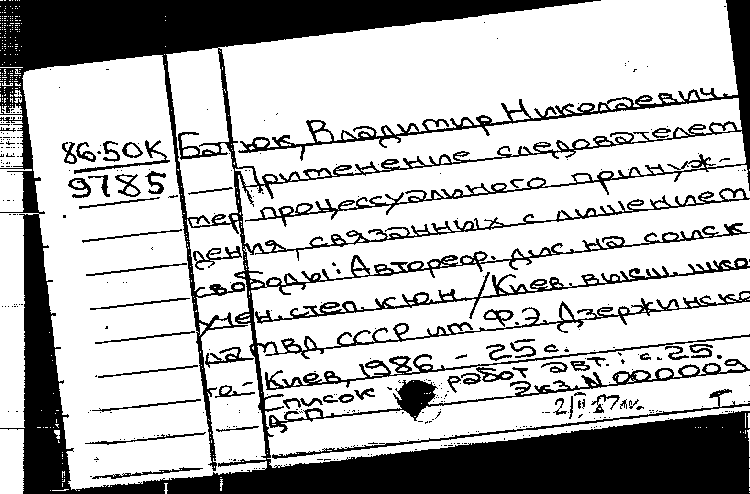 86-50К Батюк, Владимир Николаевич.
9785 Применение следователем
мер процессуального принуж-
дения, связанных с лишением
свободы: Автореф. дис. на соиск
учен. степ. к.ю.н / Киев. высш. шко-
ла МВД СССР им. Ф.Э. Дзержинско-
го. - Киев, 1986. - 25 с.
Список работ авт.: с. 25.
ДСП. Экз. N 000009
2/II-87 Т.